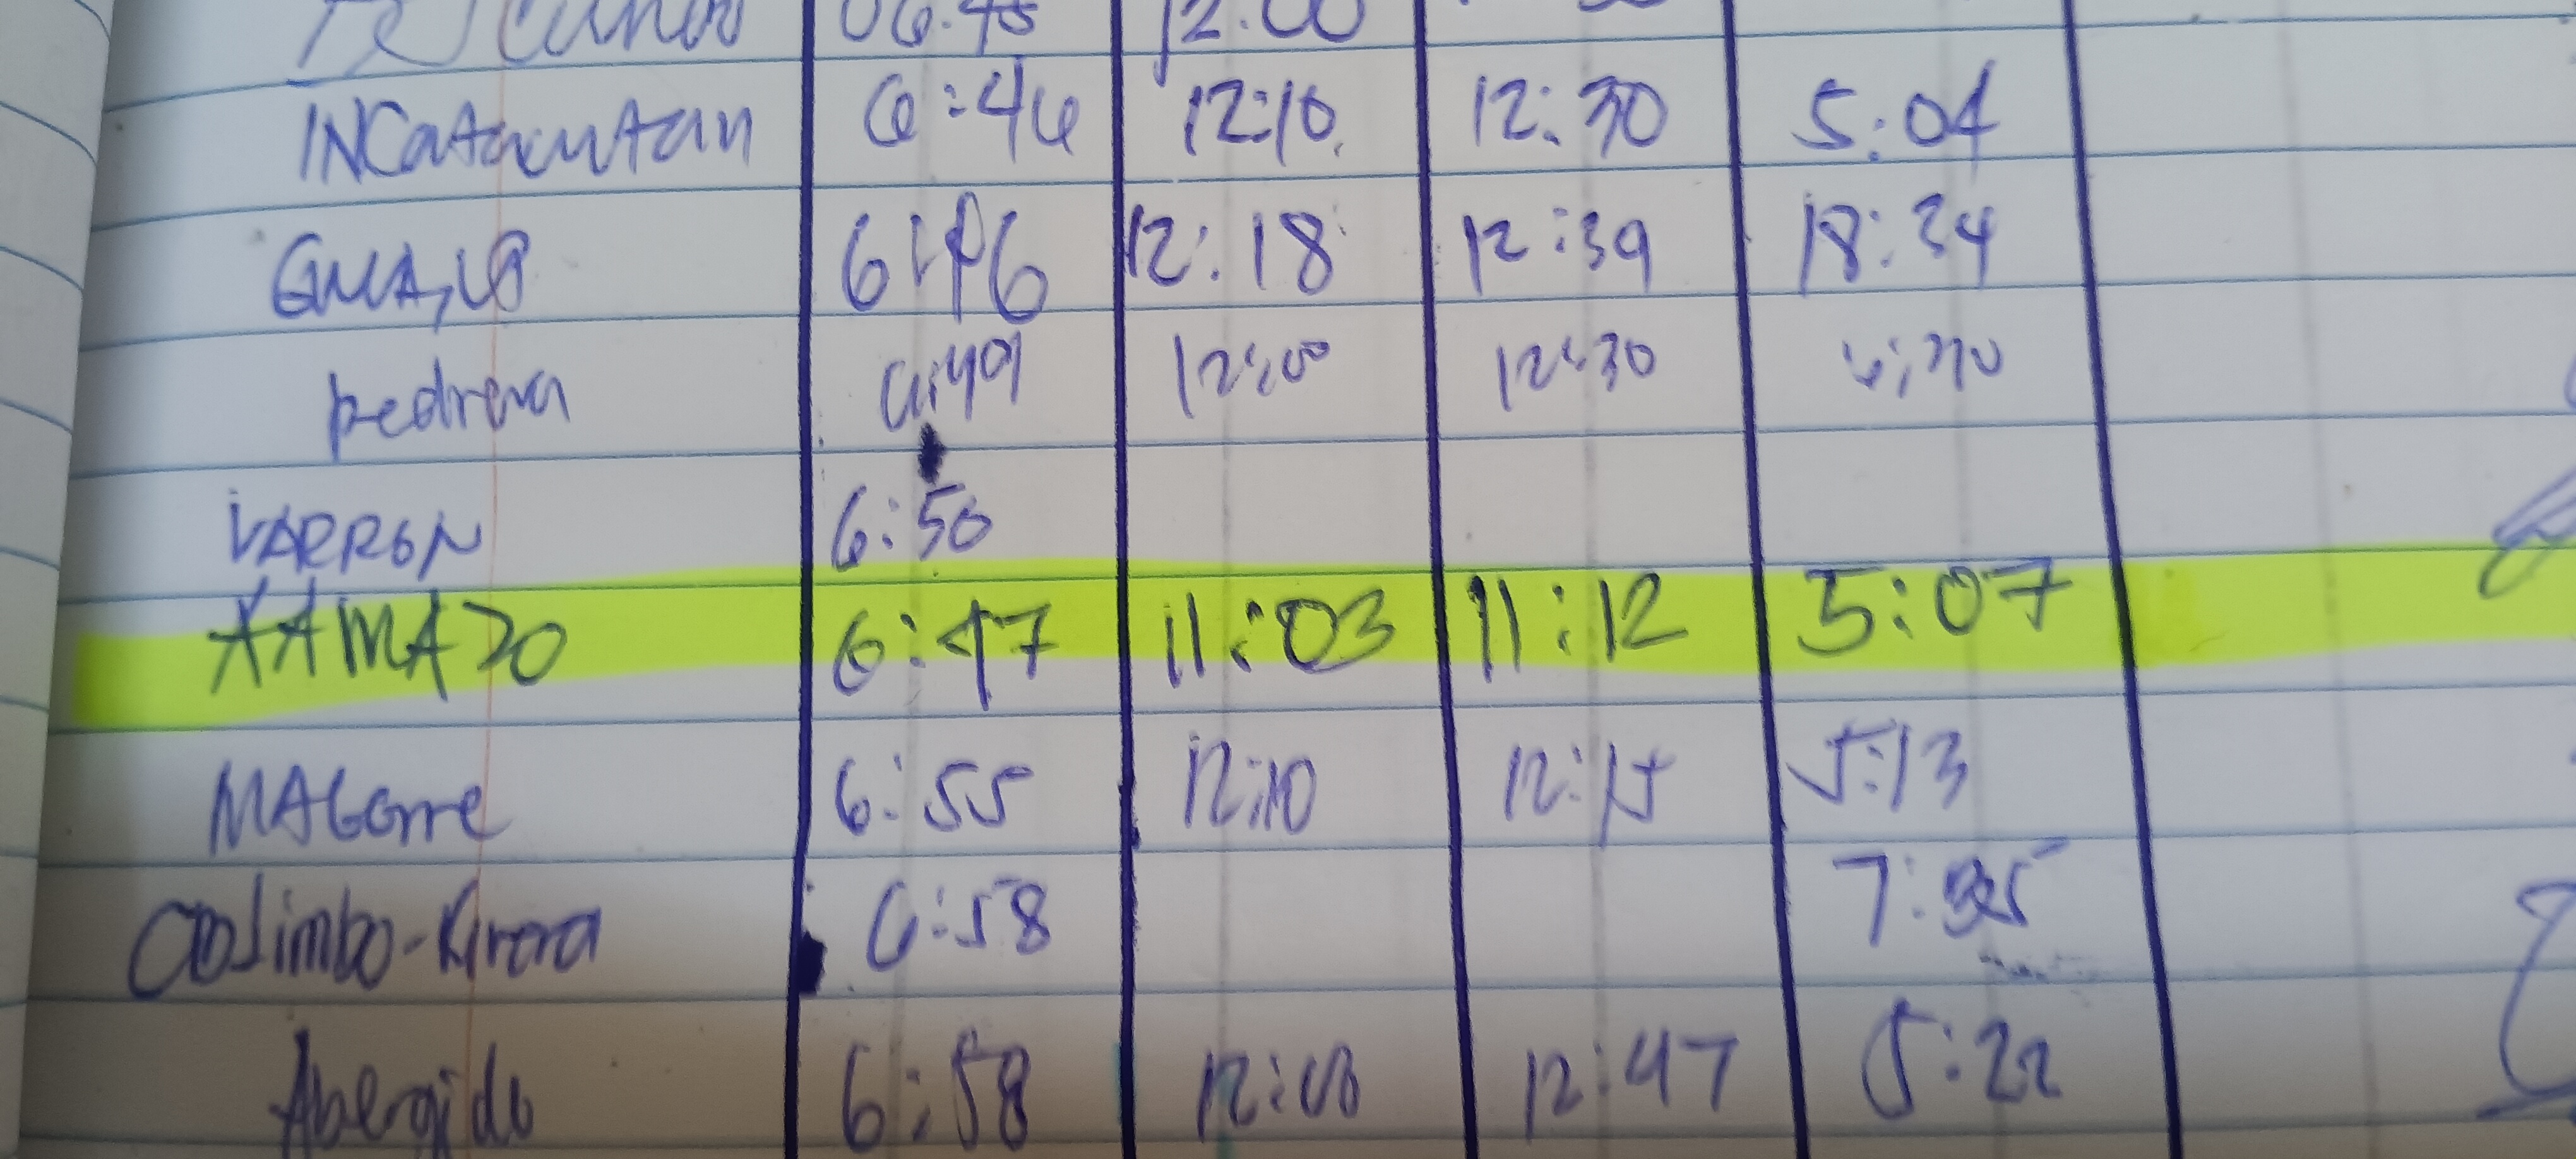 06:45 12:00
INCatacutan 6:46 12:10 12:30 5:04
6:46 12:18 12:39 18:34
pedrera 12:00 12:30
VARRON 6:50
AAMADO 6:47 11:03 11:12 5:07
MAGorre 6:55 12:10 12:15 5:13
6:58
Abergido 6:58 12:00 12:47 5:22